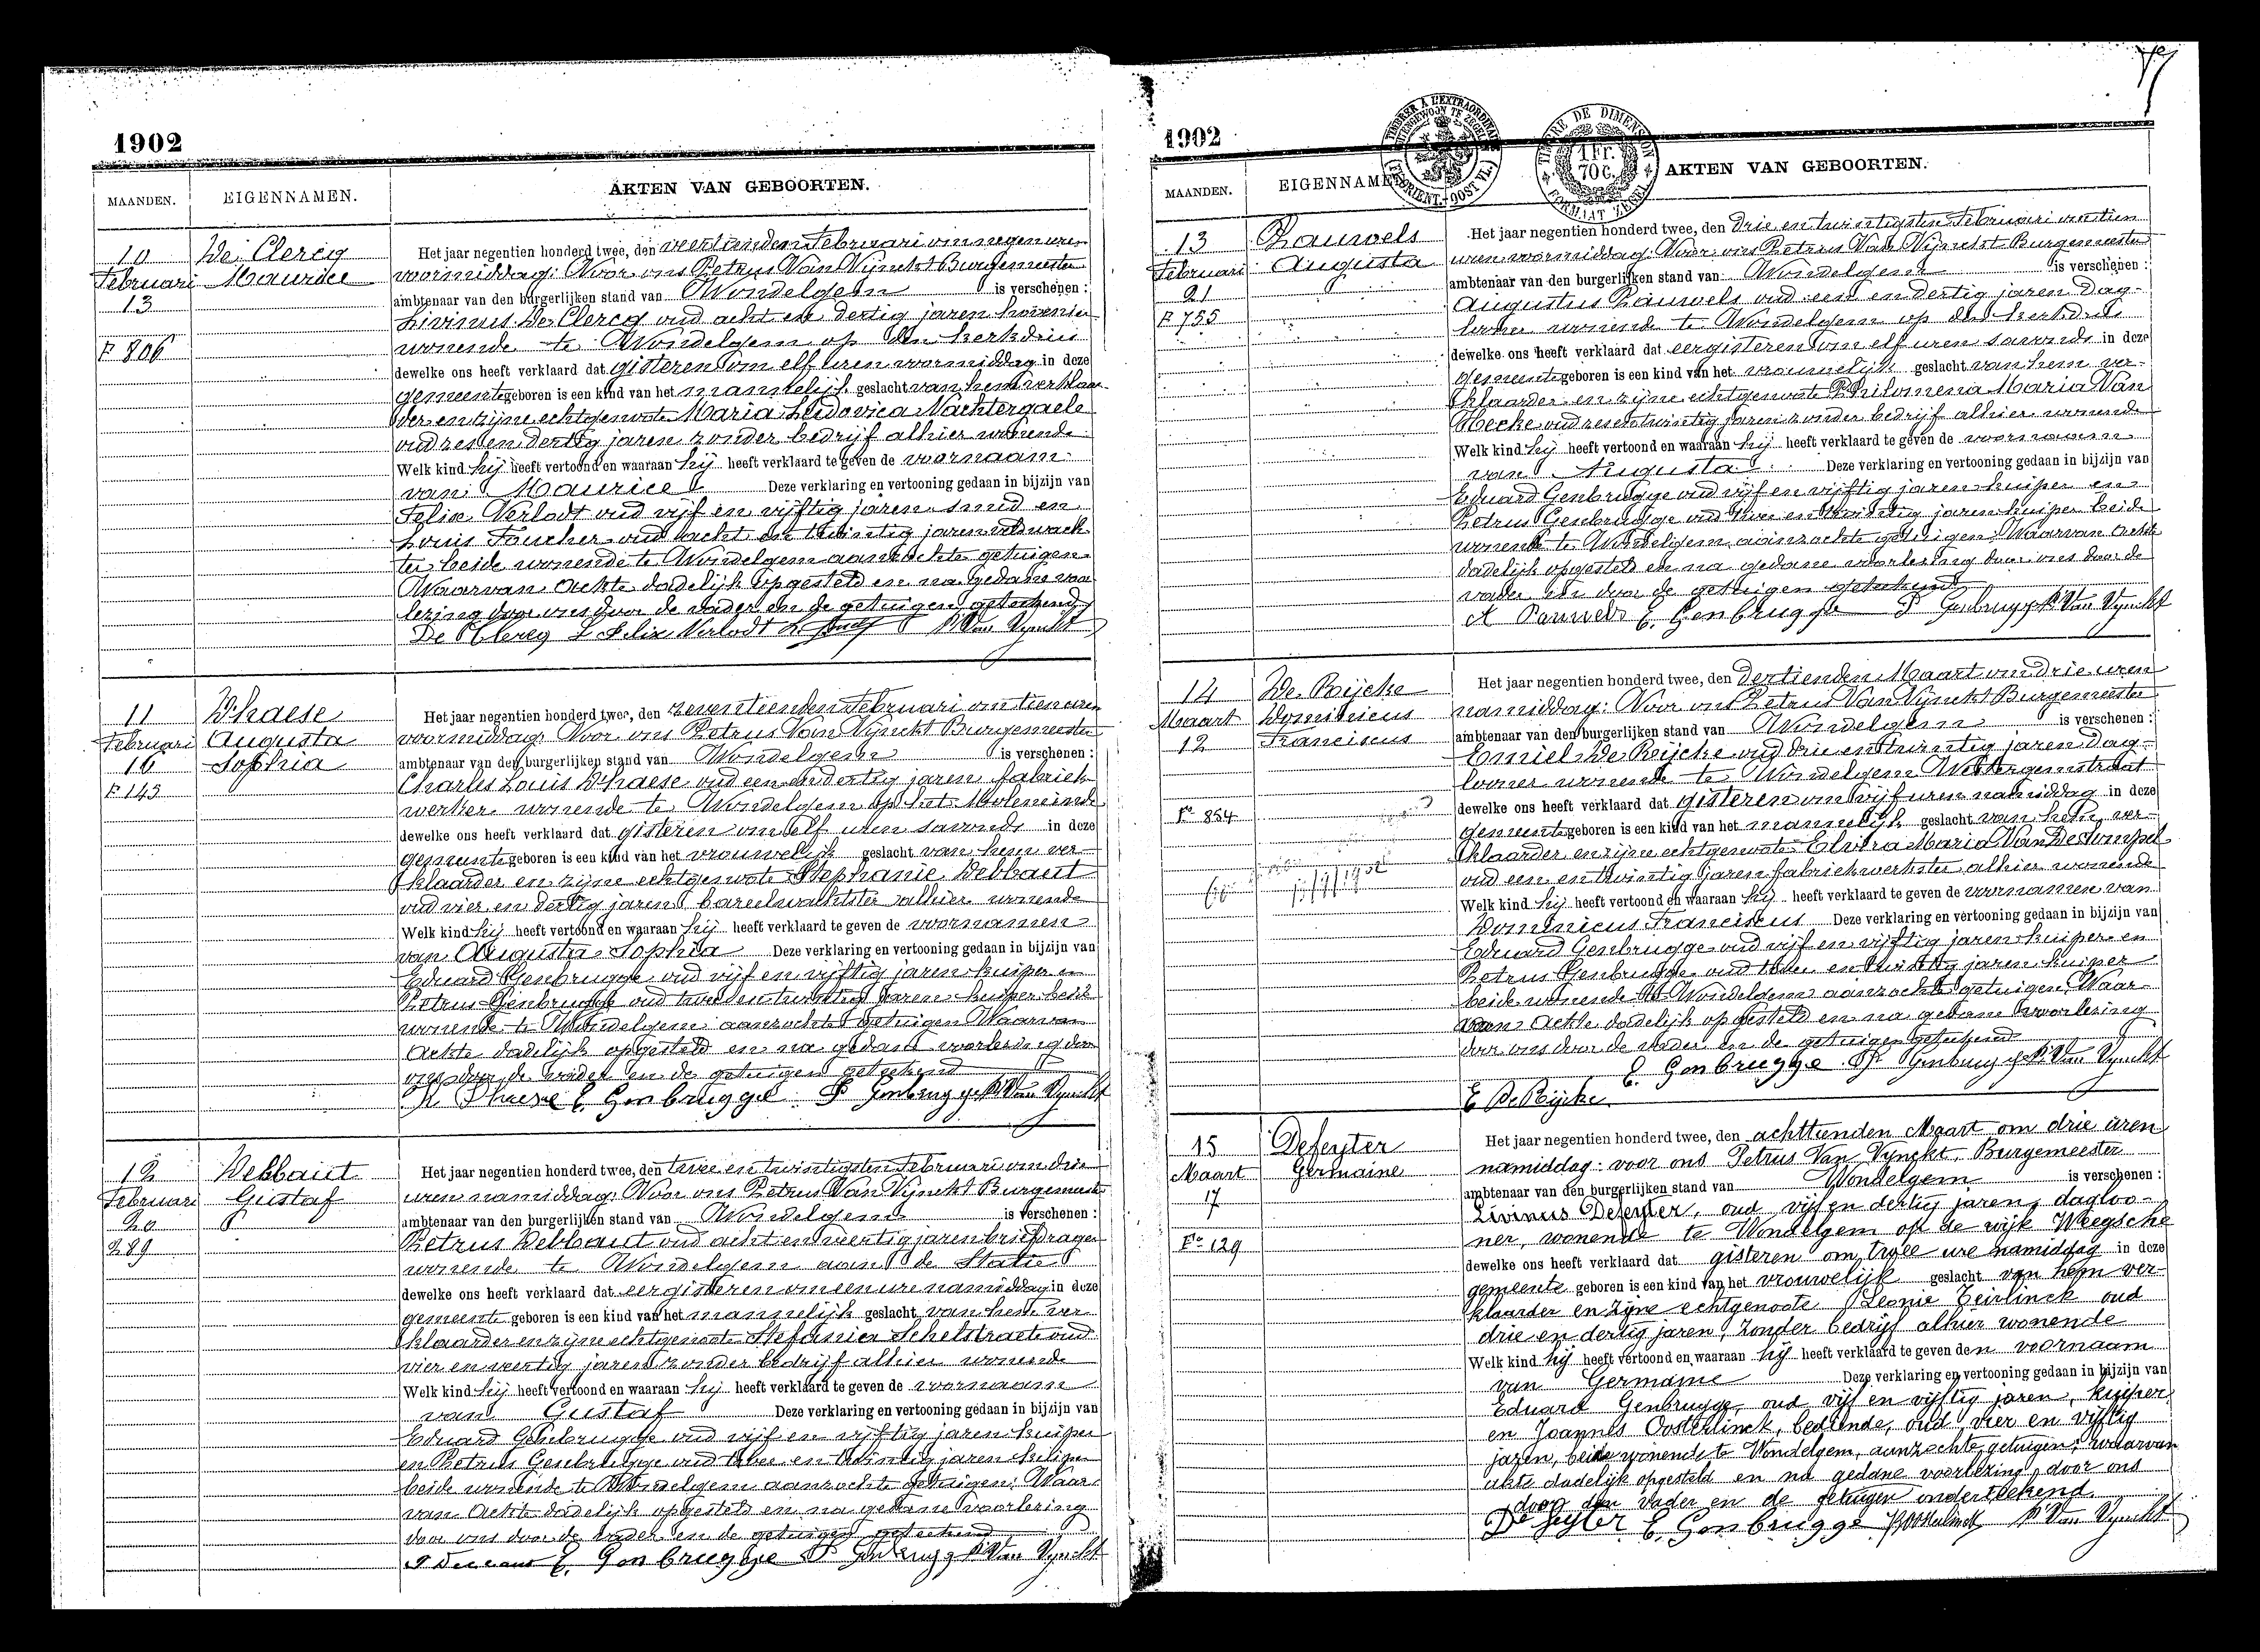 1902
MAANDEN.
EIGENNAMEN.
AKTEN VAN GEBOORTEN.
10
Februari
13
F 806
De Clercq
Maurice
Het jaar negentien honderd twee, den veertienden Februari om negen uren
voormiddag: Voor ons Petrus Van Vynckt Burgemeester
ambtenaar van den burgerlijken stand van Wondelgem is verschenen:
Livinus De Clercq oud acht en dertig jaren hovenier
wonende te Wondelgem op den Kerkdries
dewelke ons heeft verklaard dat gisteren om elf uren voormiddag in deze
gemeente geboren is een kind van het mannelijk geslacht van hem verklaar
der en zijne echtgenoote Maria Ludovica Nachtergaele
oud zes en dertig jaren zonder bedrijf alhier wonende
Welk kind hij heeft vertoond en waaraan hij heeft verklaard te geven de voornaam
van Maurice Deze verklaring en vertooning gedaan in bijzijn van
Felix Verlodt oud vijf en vijftig jaren smid en
Louis Foucher oud acht en twintig jaren veldwach
ter beide wonende te Wondelgem aanzochte getuigen
Waarvan Ackte dadelijk opgesteld en na gedane voor
lezing door ons door de vader en de getuigen geteekend
De Clercq L Felix Verlodt P Van Vynckt
11
Februari
16
F 143
D'haese
Augusta
Sophia
Het jaar negentien honderd twee, den zeventienden Februari om tien uren
voormiddag: Voor ons Petrus Van Vynckt Burgemeester
ambtenaar van den burgerlijken stand van Wondelgem is verschenen:
Charles Louis D'haese oud een en dertig jaren fabriek
werker wonende te Wondelgem op het Moleneinde
dewelke ons heeft verklaard dat gisteren om elf uren savonds in deze
gemeente geboren is een kind van het vrouwelijk geslacht van hem ver-
klaarder en zijne echtgenoote Stephanie Debbaut
oud vier en dertig jaren bareelwachtster alhier wonende
Welk kind hij heeft vertoond en waaraan hij heeft verklaard te geven de voornamen
van Augusta Sophia Deze verklaring en vertooning gedaan in bijzijn van
Eduard Genbrugge oud vijf en vijftig jaren kuiper en
Petrus Genbrugge oud twee en twintig jaren kuiper beide
wonende te Wondelgem aanzochte getuigen Waarvan
Ackte dadelijk opgesteld en na gedane voorlezing door
ons door de vader en de getuigen geteekend
K Dhaese E. Genbrugge P Genbrugge P Van Vynckt
12
Februari
20
289
Debbaut
Gustaf
Het jaar negentien honderd twee, den twee en twintigsten Februari om drie
uren namiddag: Voor ons Petrus Van Vynckt Burgemeester
ambtenaar van den burgerlijken stand van Wondelgem is verschenen:
Petrus Debbaut oud acht en veertig jaren briefdrager
wonende te Wondelgem aan de Statie
dewelke ons heeft verklaard dat eergisteren om een ure namiddag in deze
gemeente geboren is een kind van het mannelijk geslacht van hem ver
klaarder en zijne echtgenoote Stefania Schelstraete oud
vier en veertig jaren zonder bedrijf alhier wonende
Welk kind hij heeft vertoond en waaraan hij heeft verklaard te geven de voornaam
van Gustaf Deze verklaring en vertooning gedaan in bijzijn van
Eduard Genbrugge oud vijf en vijftig jaren kuiper
en Petrus Genbrugge oud twee en twintig jaren kuiper
beide wonende te Wondelgem aanzochte getuigen: Waar-
van Ackte dadelijk opgesteld en na gedane voorlezing
door ons door de vader en de getuigen geteekend
E. Genbrugge P Genbrugg P Van Vynckt
1902
TIMBRE A L'EXTRAORDINAIRE
BUITENGEWOON TE ZEGELEN
(FL. ORIENT.-OOST VL.)
TIMBRE DE DIMENSION
1 Fr.
70 C.
FORMAAT ZEGEL
MAANDEN.
EIGENNAMEN
AKTEN VAN GEBOORTEN.
13
Februari
21
F 755
Pauwels
Augusta
Het jaar negentien honderd twee, den drie en twintigsten Februari om tien
uren voormiddag: Voor ons Petrus Van Vynckt Burgemeester
ambtenaar van den burgerlijken stand van Wondelgem is verschenen:
Augustus Pauwels oud een en dertig jaren dag-
looner wonende te Wondelgem op den Kerkdries
dewelke ons heeft verklaard dat eergisteren om elf uren savonds in deze
gemeente geboren is een kind van het vrouwelijk geslacht van hem ver-
klaarder en zijne echtgenoote Philomena Maria Van
Hecke oud zes en twintig jaren zonder bedrijf alhier wonende
Welk kind hij heeft vertoond en waaraan hij heeft verklaard te geven de voornaam
van Augusta Deze verklaring en vertooning gedaan in bijzijn van
Eduard Genbrugge oud vijf en vijftig jaren kuiper en
Petrus Genbrugge oud twee en twintig jaren kuiper beide
wonende te Wondelgem aanzochte getuigen: Waarvan Ackte
dadelijk opgesteld en na gedane voorlezing door ons door de
vader en door de getuigen geteekend
A Pauwels E. Genbrugge P Genbrugge P Van Vynckt
14
Maart
12
Fo 854
De Rijcke
Dominicus
Franciscus
Het jaar negentien honderd twee, den dertienden Maart om drie uren
namiddag: Voor ons Petrus Van Vynckt Burgemeester
ambtenaar van den burgerlijken stand van Wondelgem is verschenen:
Emiel De Rijcke oud drie en twintig jaren dag-
looner wonende te Wondelgem Westergemstraat
dewelke ons heeft verklaard dat gisteren om vijf uren namiddag in deze
gemeente geboren is een kind van het mannelijk geslacht van hem ver-
klaarder en zijne echtgenoote Elvira Maria Van De Rompel
oud een en twintig jaren fabriekwerkster alhier wonende
Welk kind hij heeft vertoond en waaraan hij heeft verklaard te geven de voornamen van
Dominicus Franciscus Deze verklaring en vertooning gedaan in bijzijn van
Eduard Genbrugge oud vijf en vijftig jaren kuiper en
Petrus Genbrugge oud twee en twintig jaren kuiper
beide wonende te Wondelgem aanzochte getuigen, Waar-
van Ackte dadelijk opgesteld en na gedane voorlezing
door ons door de vader en de getuigen geteekend
E. Genbrugge P Genbrugge P Van Vynckt
E De Rijcke
15
Maart
17
Fo 129
Defeyter
Germaine
Het jaar negentien honderd twee, den achttienden Maart om drie uren
namiddag: voor ons Petrus Van Vynckt, Burgemeester
ambtenaar van den burgerlijken stand van Wondelgem is verschenen:
Livinus Defeyter, oud vijf en dertig jaren, dagloo-
ner, wonende te Wondelgem op de wijk Weegsche
dewelke ons heeft verklaard dat gisteren om twee ure namiddag in deze
gemeente geboren is een kind van het vrouwelijk geslacht van hem ver-
klaarder en zijne echtgenoote Leonie Teirlinck oud
drie en dertig jaren, zonder bedrijf alhier wonende
Welk kind hij heeft vertoond en waaraan hij heeft verklaard te geven den voornaam
van Germaine Deze verklaring en vertooning gedaan in bijzijn van
Eduard Genbrugge, oud vijf en vijftig jaren, kuiper
en Joannes Oosterlinck, bediende, oud vier en vijftig
jaren, beide wonende te Wondelgem, aanzochte getuigen; waarvan
akte dadelijk opgesteld en na gedane voorlezing door ons
door den vader en de getuigen onderteekend.
De feyter E. Genbrugge P Van Vynckt